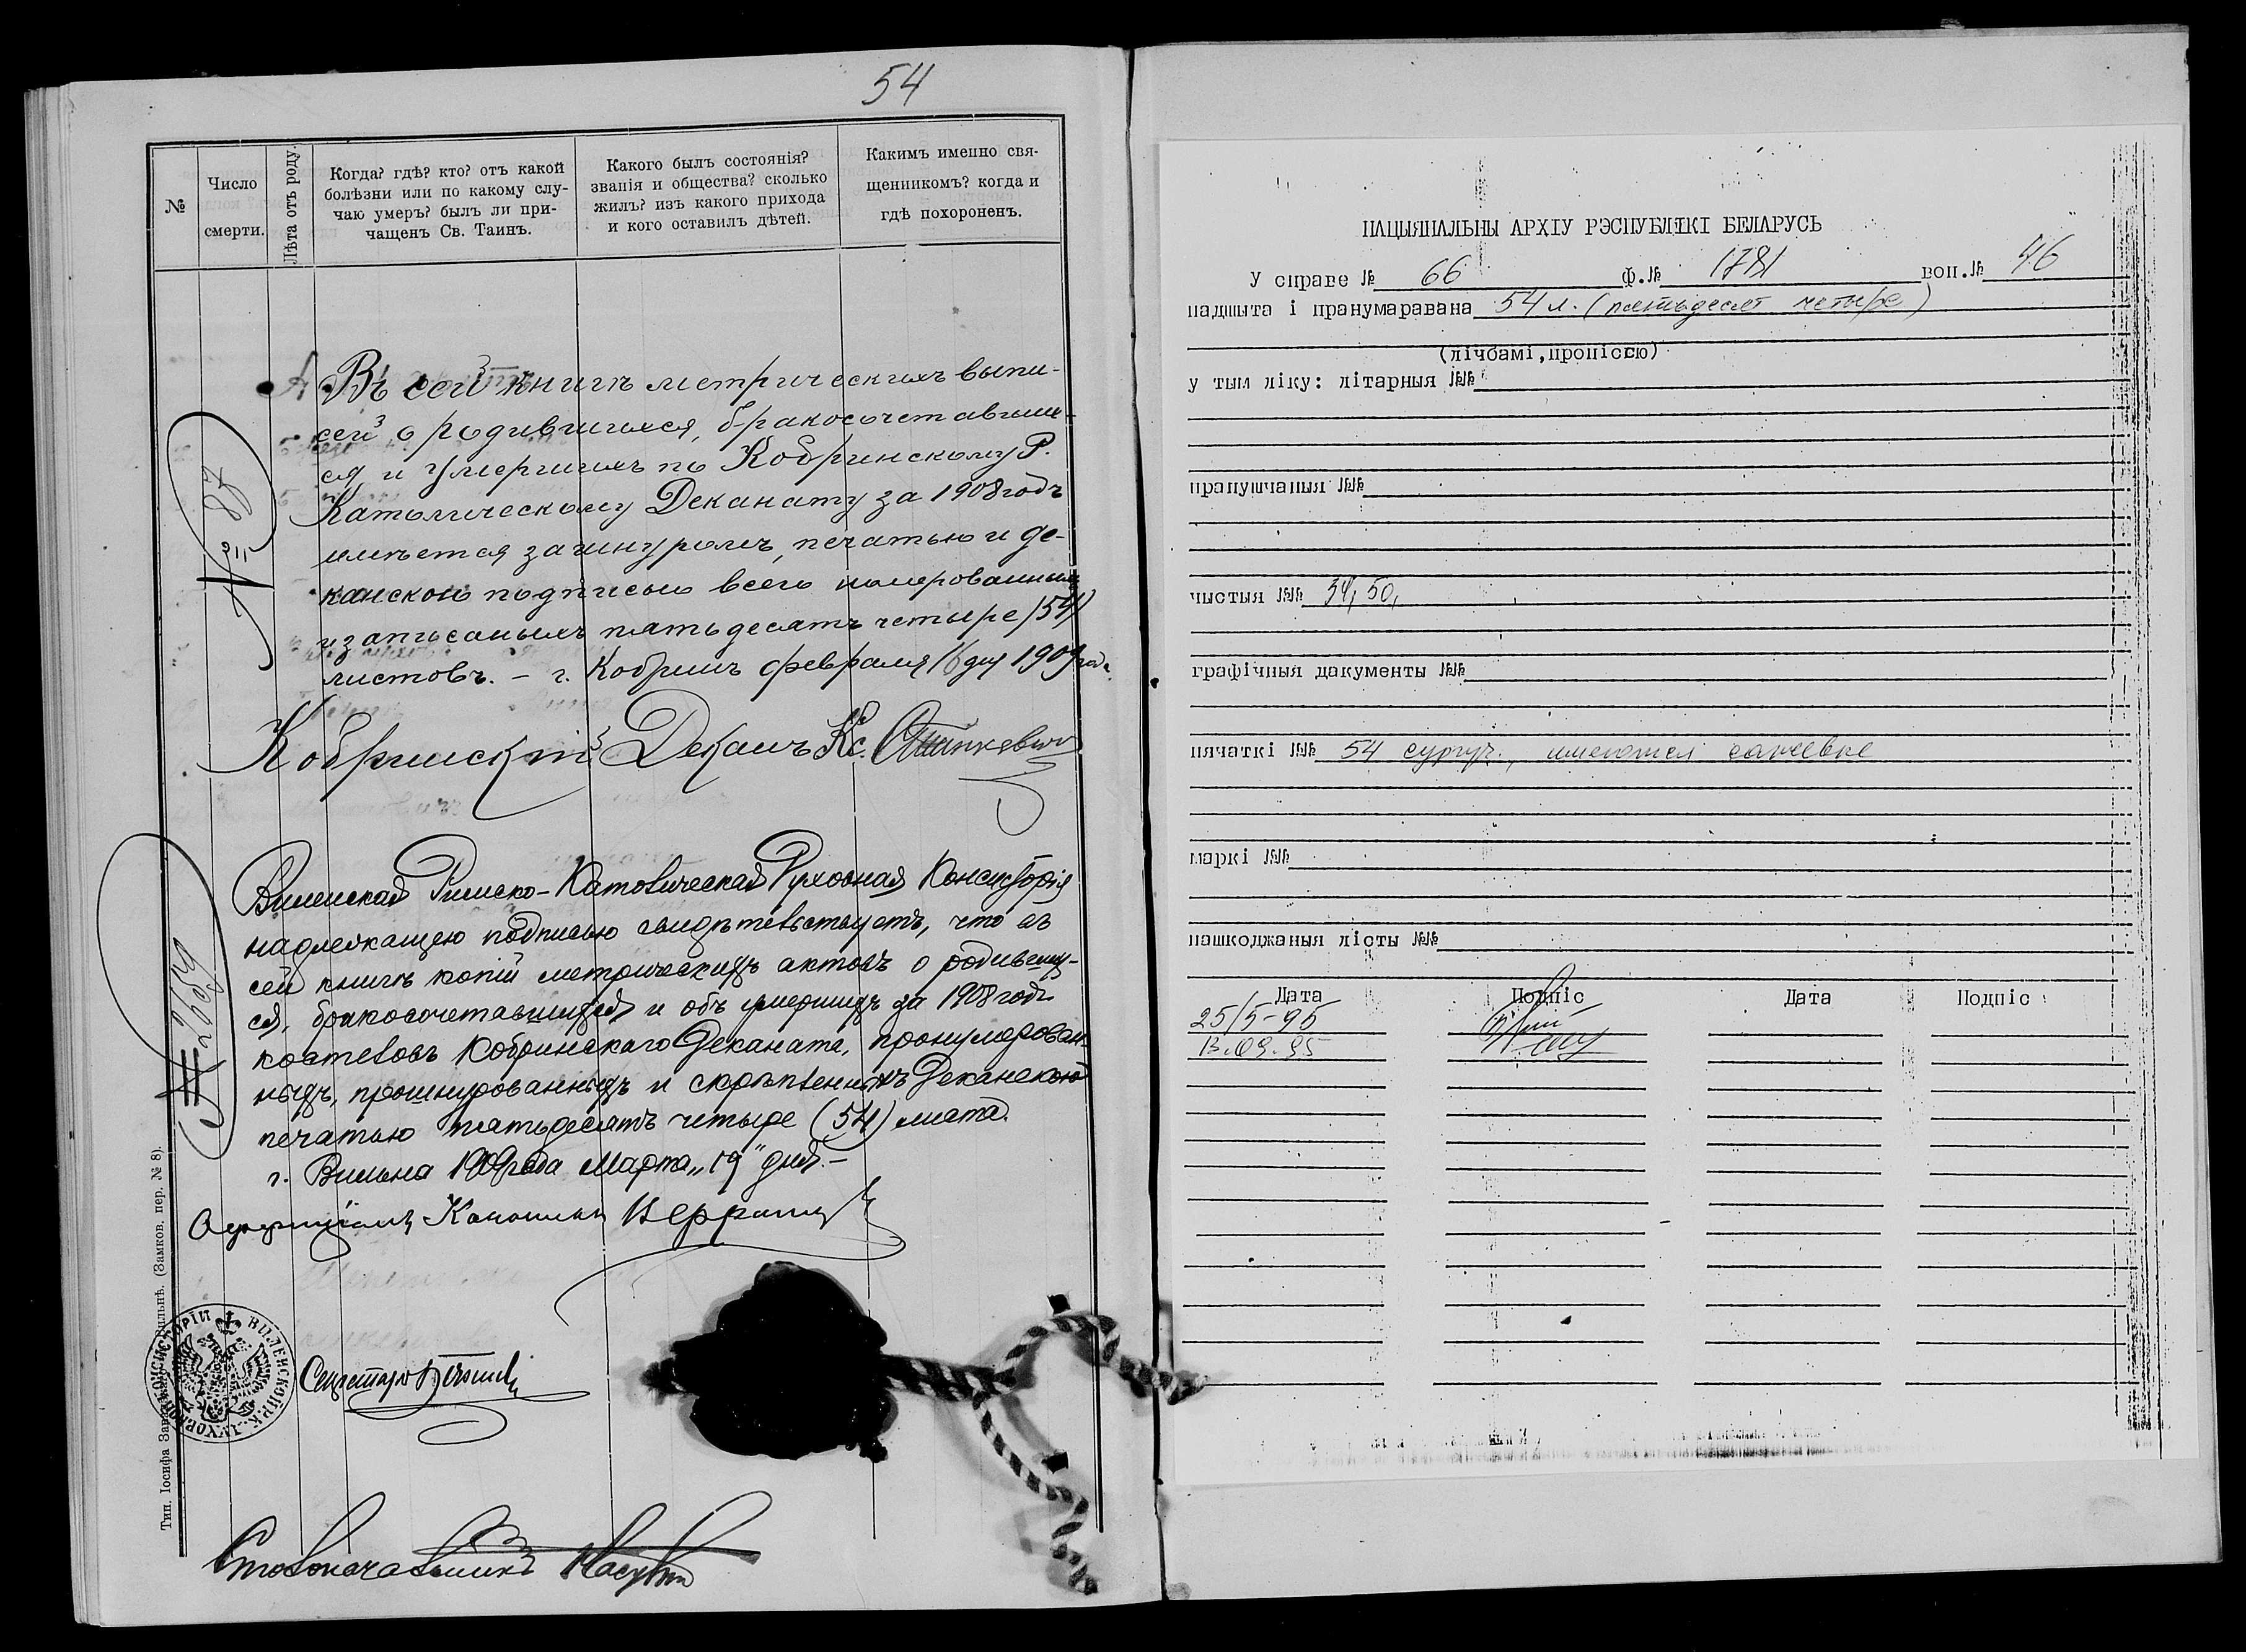 54
№
Число
смерти.
Лѣта отъ роду.
Когда? гдѣ? кто? отъ какой
болѣзни или по какому слу-
чаю умеръ? былъ ли при-
чащенъ Св. Таинъ.
Какого былъ состоянія?
званія и общества? сколько
жилъ? изъ какого прихода
и кого оставилъ дѣтей.
Какимъ именно свя-
щенникомъ? когда и
гдѣ похороненъ.
№ 87
Въ сей книгѣ метрическихъ выпи-
сей о родившихся, бракосочетавших-
ся и умершихъ по Кобринскому Р.
Католическому Деканату за 1908 годъ
имѣется за шнуромъ, печатью и де-
канскою подписью всего номерованныхъ
и записаныхъ пятьдесятъ четыре /54/
листовъ. – г. Кобринъ февраля 16 дня 1909 года.
Кобринскій Деканъ Кс.
№ 2659
Виленская Римско-Католическая Духовная Консисторія
надлежащею подписью свидѣтельствуетъ, что въ
сей книгѣ копій метрическихъ актовъ о родивших-
ся, бракосочетавшихся и объ умершихъ за 1908 годъ
костеловъ Кобринскаго Деканата, пронумерован-
ныхъ, прошнурованныхъ и скрѣпленныхъ Деканскою
печатью пятьдесятъ четыре (54) листа.
г. Вильна 1909 года Марта „19" дня. –
Каноникъ
Секретарь
ВИЛЕНСКОЙ Р.К. ДУХОВНОЙ КОНСИСТОРІИ
Столоначальникъ
Тип. Іосифа Завадзкаго Вильнѣ. (Замков. пер. № 8).
НАЦЫЯНАЛЬНЫ АРХІУ РЭСПУБЛІКІ БЕЛАРУСЬ
У справе № 66 ф.№ 1781 воп.№ 46
падшыта і пранумаравана 54 л. (пятьдесят четыре)
(лічбамі,пропіссю)
у тым ліку: літарныя №№
прапушчаныя №№
чыстыя №№ 34, 50,
графічныя дакументы №№
пячаткі №№ 54 сургуч.,
маркі №№
пашкоджаныя лісты №№
Дата Подпіс Дата Подпіс
25/5-95
13.09.95